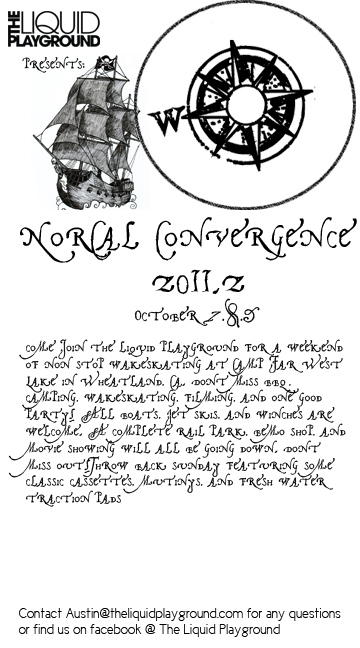 THE LIQUID
PLAYGROUND
Presents:
W
NorCal Convergence
2011.2
October 7.8.9
Come Join the Liquid Playground for a weekend
of non stop wakeskating at Camp Far West
Lake in Wheatland, Ca. Dont miss BBQ,
Camping, wakeskating, filming, and one good
Party! All boats, jet skis, and winches are
welcome. A complete rail park, demo shop, and
movie showing will all be going down. Dont
miss out! Throw back sunday featuring some
classic cassettes, Mutinys, and fresh water
traction pads
Contact Austin@theliquidplayground.com for any questions
or find us on facebook @ The Liquid Playground